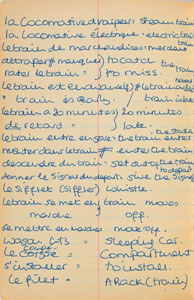 la locomotive à vapeur = steam train
la locomotive électrique = electric train
le train de marchandises =
attraper (≠ manquer) = to catch
rater le train = to miss.
le train est en avance (≠ le train
" train is early.
le train a 20 minutes = 20 minutes
de retard = late
le train entre en gare = the train enters
monter dans le train ≠ enter the train
descendre du train = get out of the train
donner le signal du départ = give the signal
le sifflet (siffler) whistle.
le train se met en = train moves
marche off.
se mettre en marche = move off.
wagon lits = sleeping car.
= compartment
s'installer = to install.
le filet = a rack (train)